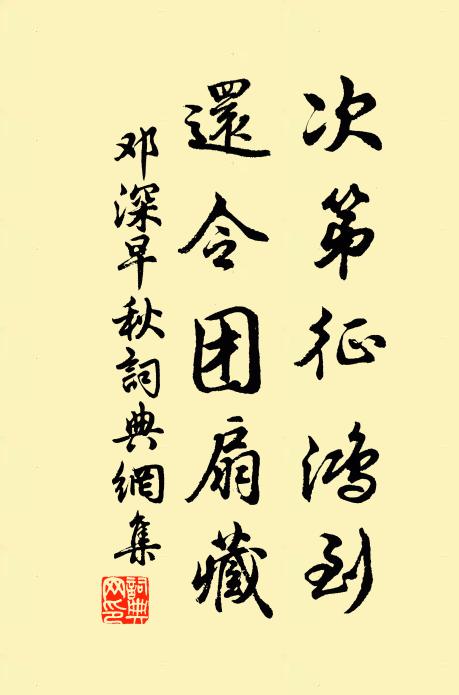 次第征鴻到
還令团扇藏
邓深早秋詞典網集
詞典网印